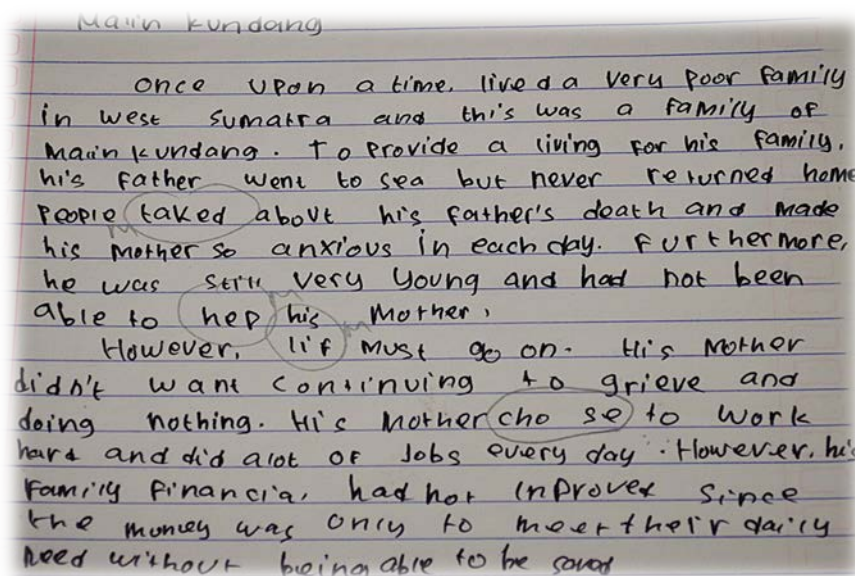 Malin Kundang
Once upon a time, lived a very poor family
in west sumatra and this was a family of
Malin kundang. To provide a living for his family,
his father went to sea but never returned home
People taked about his father's death and made
his mother so anxious in each day. Furthermore,
he was still very young and had not been
able to hep his mother,
However, lif must go on. His mother
didn't want continuing to grieve and
doing nothing. His mother cho se to work
hard and did alot of Jobs every day. However, his
Family financial had not inproved since
the money was only to meet their daily
need without being able to be saved